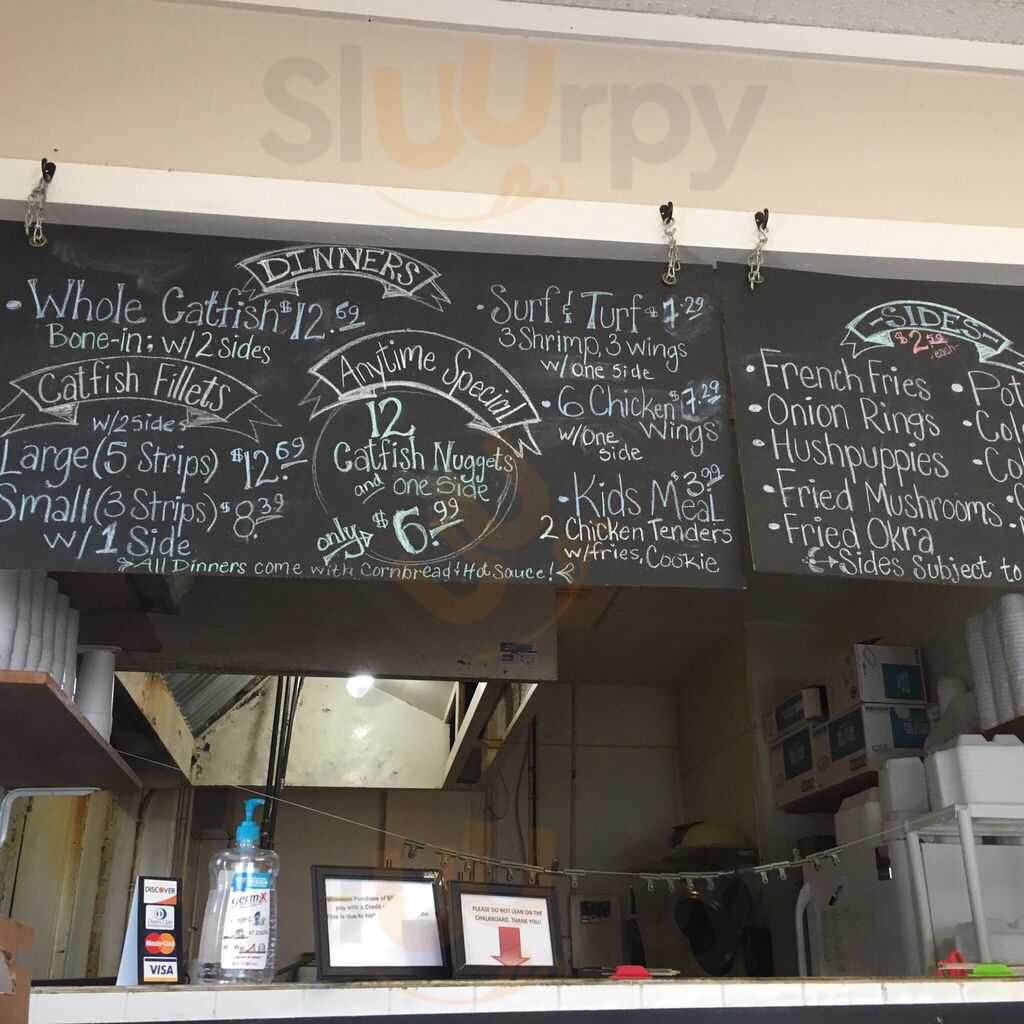 Sluurpy
DINNERS
• Whole Catfish $12.69
Bone-in; w/2 Sides
Catfish Fillets
w/2 Sides
Large (5 Strips) $12.69
Small (3 Strips) $8.39
w/1 Side
Anytime Special
12
Catfish Nuggets
and one Side
only $6.99
• Surf & Turf $7.29
3 Shrimp, 3 wings
w/one side
• 6 Chicken $7.29
Wings
w/One
side
• Kids Meal $3.99
2 Chicken Tenders
w/fries, Cookie
All Dinners come with Cornbread & Hot Sauce!
-SIDES-
$2.59
-each-
• French Fries
• Onion Rings
• Hushpuppies
• Fried Mushrooms
• Fried Okra
• Pot
• Col
• Co
Sides Subject to
DISCOVER
Diners Club
MasterCard
VISA
germ-x
Minimum Purchase of $
pay with a Credit
This is due to
PLEASE DO NOT LEAN ON THE
CHALKBOARD. THANK YOU!